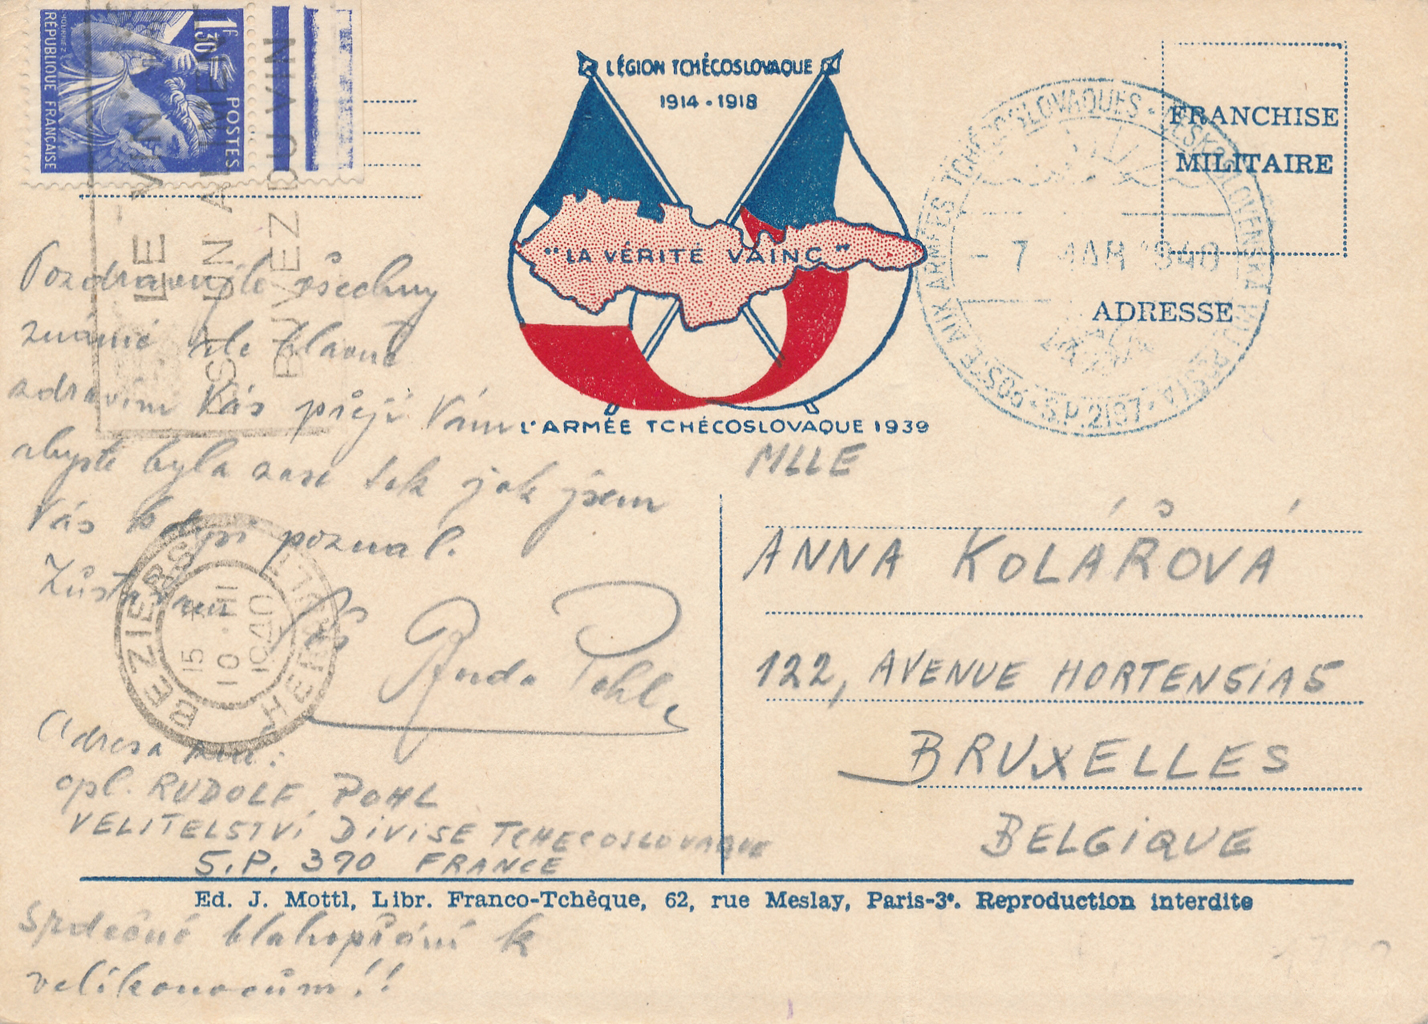 1F30
POSTES
RÉPUBLIQUE FRANÇAISE
LE VIN
EST UN ALIMENT
BUVEZ DU VIN
LÉGION TCHÉCOSLOVAQUE
1914 - 1918
"LA VÉRITÉ VAINC"
L'ARMÉE TCHÉCOSLOVAQUE 1939
FRANCHISE
MILITAIRE
ADRESSE
POSTE AUX ARMÉES TCHÉCOSLOVAQUES - ČESKOSLOVENSKÁ POLNÍ POŠTA
- 7 MAR 1940
S.P. 2197
Pozdravujte všechny
známé ale hlavně
zdravím Vás přeji Vám
abyste byla zase tak jak jsem
Vás kdysi poznal.
Zůstávám Váš
Ruda Pohl
BEZIERS
HERAULT
15
10 III
1940
Adresa
cpl. RUDOLF POHL
VELITELSTVÍ DIVISE TCHECOSLOVAQUE
S.P. 390 FRANCE
MLLE
ANNA KOLÁŘOVÁ
122, AVENUE HORTENSIAS
BRUXELLES
BELGIQUE
Ed. J. Mottl, Libr. Franco-Tchèque, 62, rue Meslay, Paris-3e. Reproduction interdite
Srdečné blahopřání k
velikonocům!!